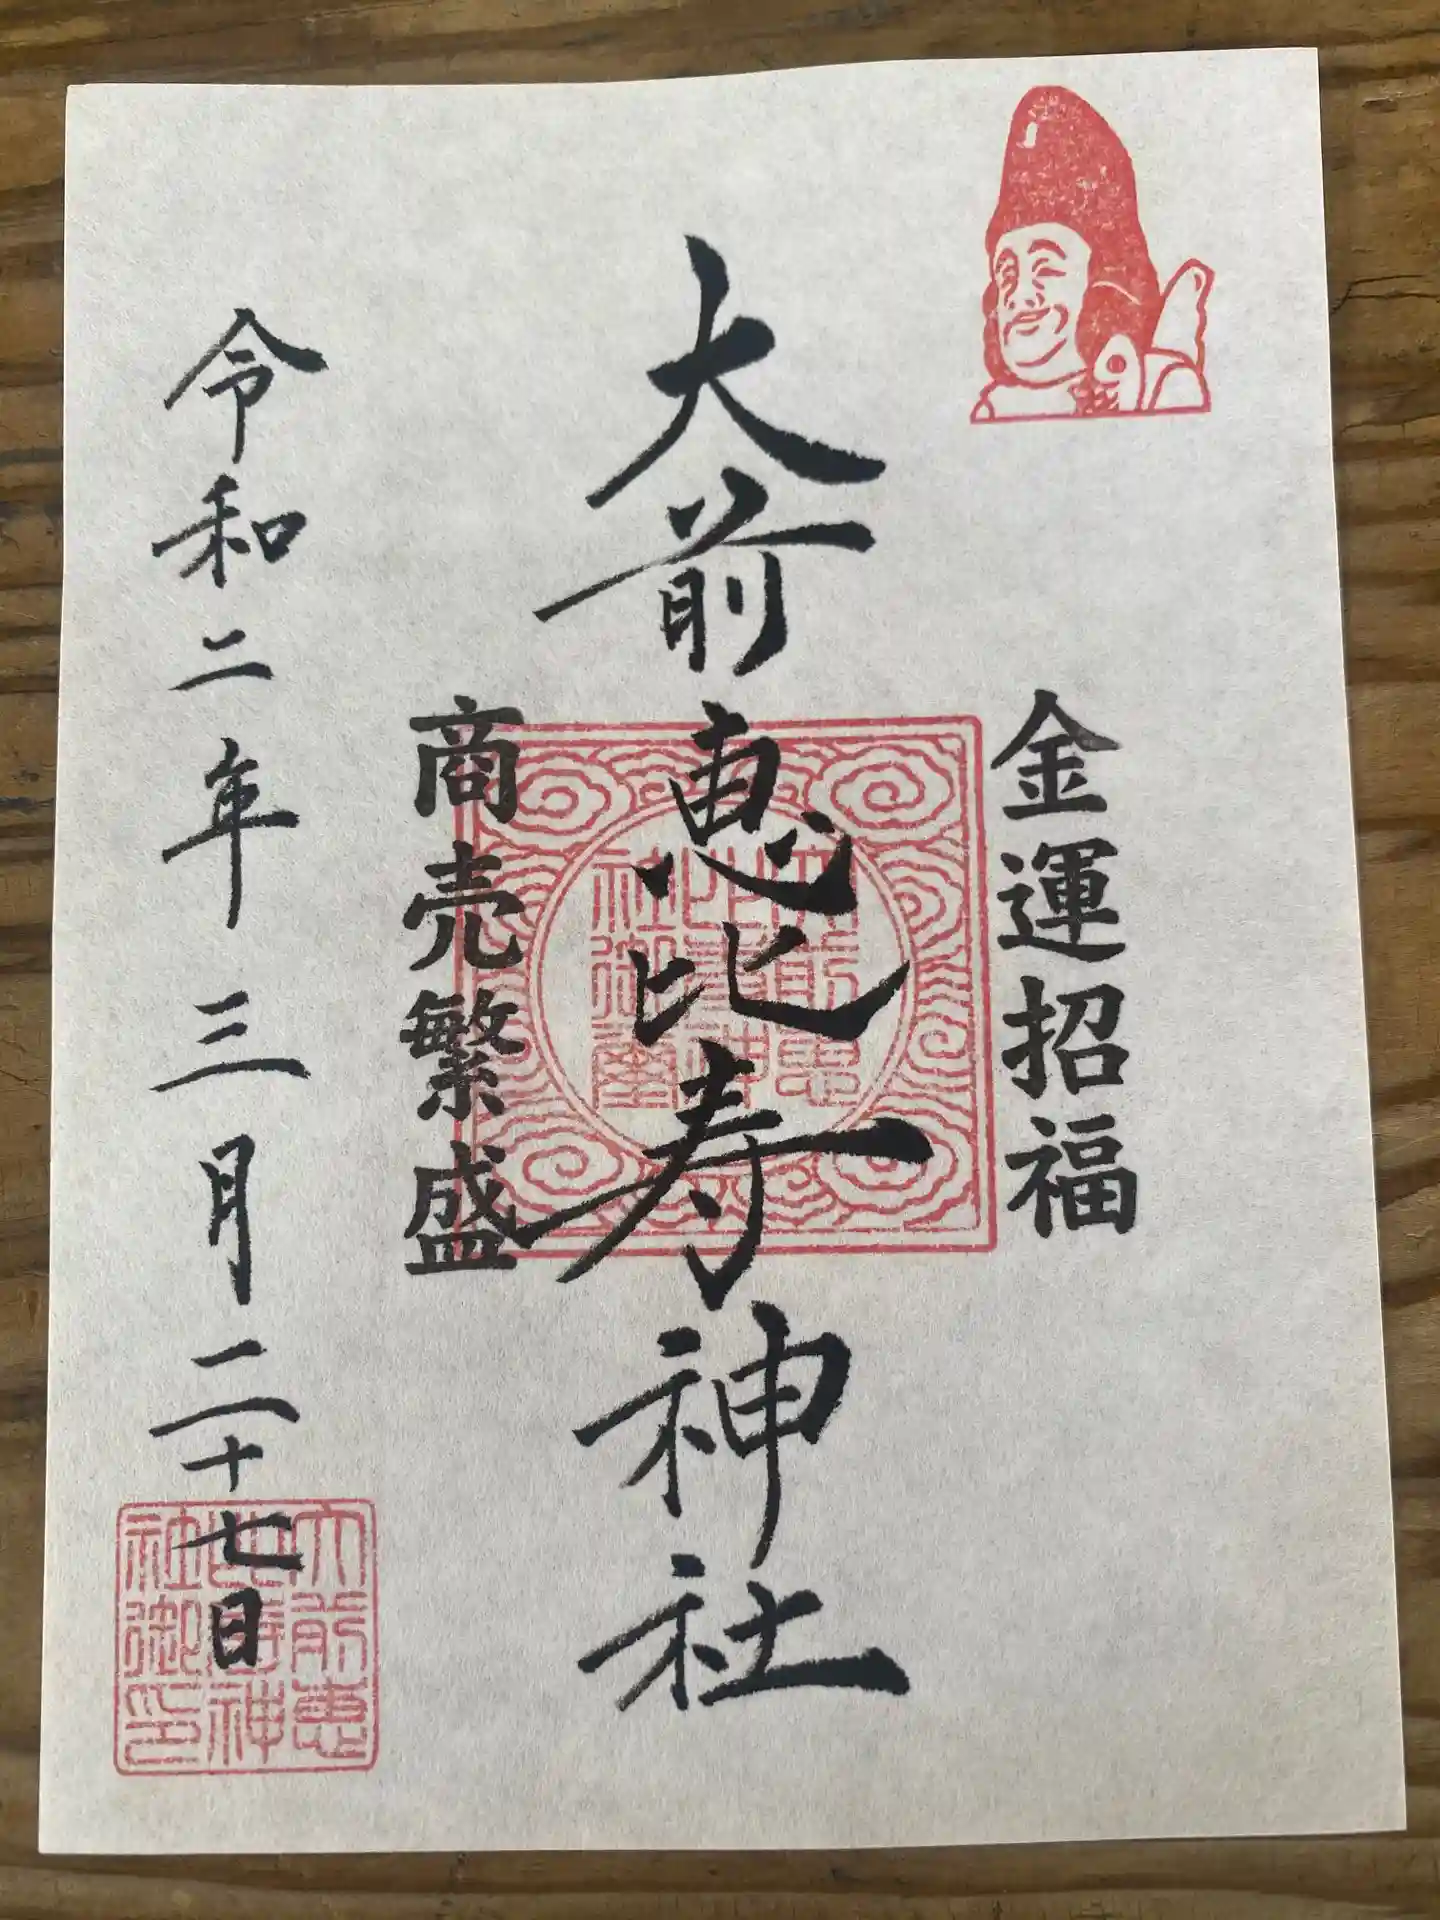 金運招福
大前恵比寿神社
商売繁盛
令和二年三月二十七日
大前恵
比寿神
社御璽
大前恵
比寿神
社御印